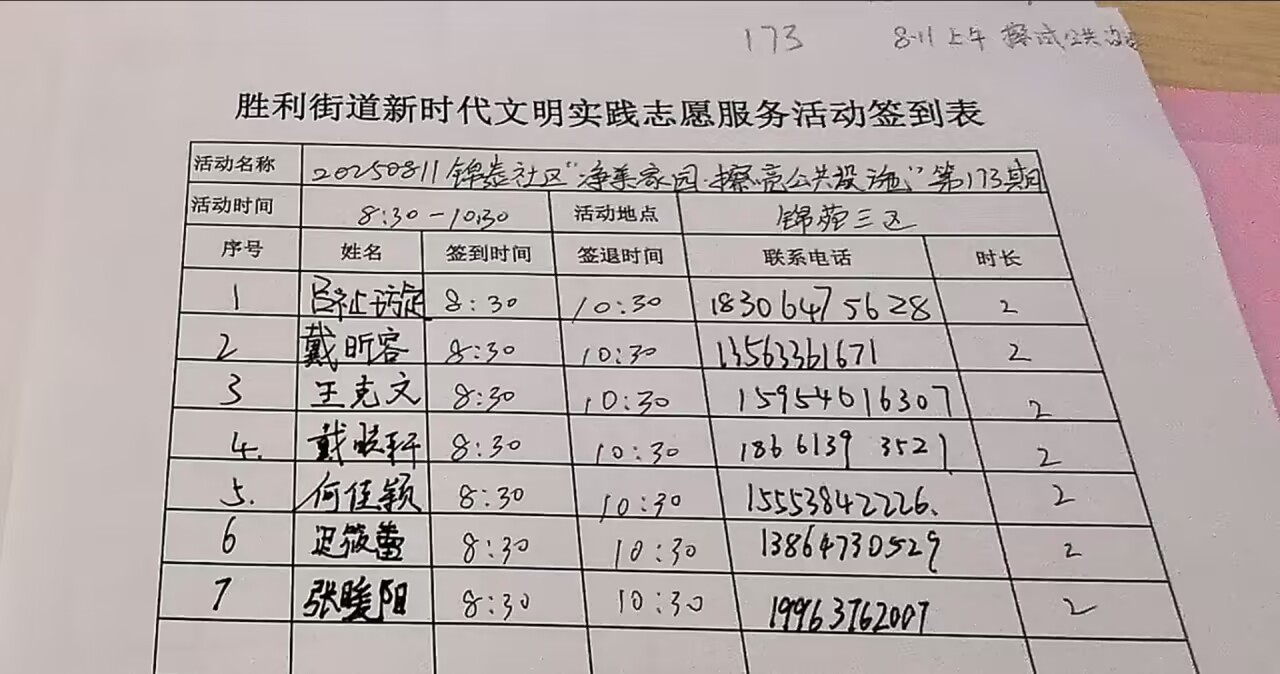 173 8.11上午 擦试公共设
胜利街道新时代文明实践志愿服务活动签到表
活动名称 20250811锦苑社区“净美家园·擦亮公共设施”第173期
活动时间 8:30-10:30 活动地点 锦苑三区
序号 姓名 签到时间 签退时间 联系电话 时长
1 8:30 10:30 18306475628 2
2 戴昕容 8:30 10:30 13563361671 2
3 王克文 8:30 10:30 15954616307 2
4. 戴晓轩 8:30 10:30 18661393521 2
5. 何佳颖 8:30 10:30 15553842226. 2
6 迟筱蕾 8:30 10:30 13864730529 2
7 张暖阳 8:30 10:30 19963762007 2